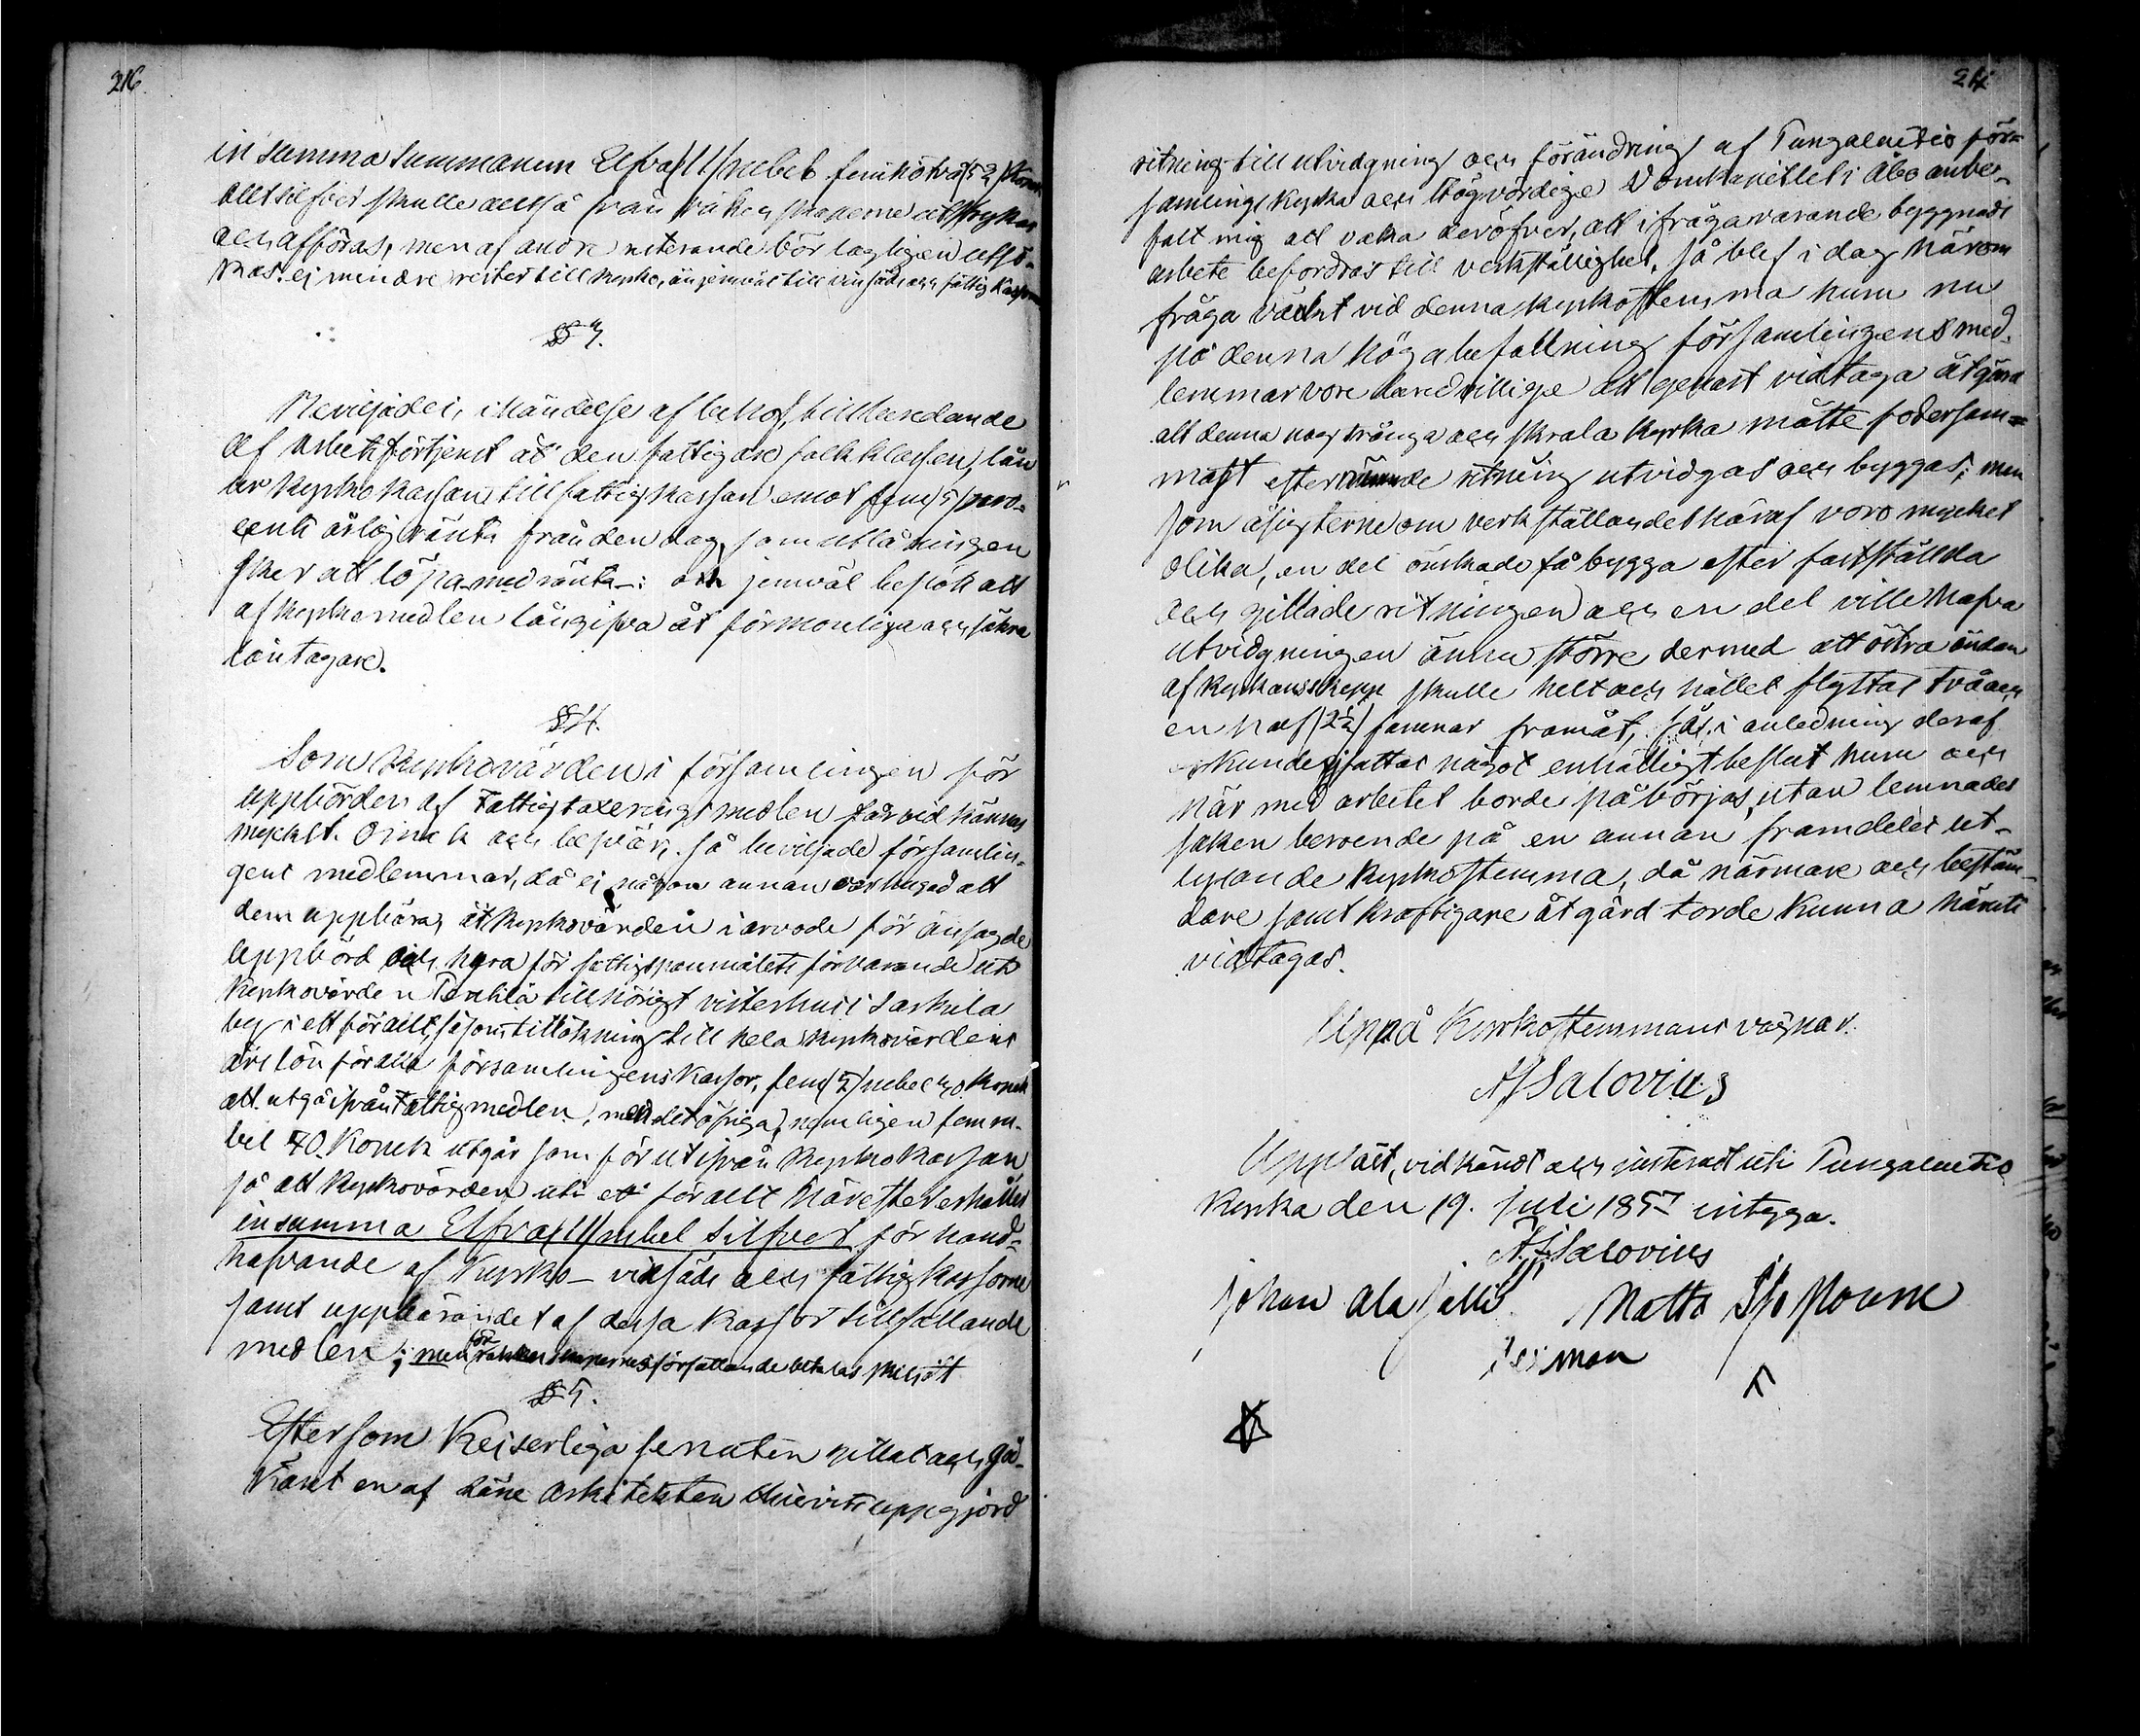 216.
in summa summarum Elfva/11/ rubel femtiotvå/52/ Kopek
allt silfver skulle altså från räkenskaperne utstrykas
och afföras, men af andre resterande bör lagligen utsö-
kas. ej mindre rester till kyrko, än jemväl till vinsäds och fattig kassorne
§ 3.
Beviljades, i händelse af behof, till beredande
af arbetsförtjenst åt den fattigare folkklassen, lån
ur kyrko kassan till fattigkassan emot fem/5/ pro-
cents årlig ränta från den dag, som utlåningen
sker att löpa med ränta: och jemväl beslöts att
af kyrkomedlen lån gifva åt förmonliga och säkra
låntagare.
§ 4.
Som Kyrkovärden i församlingen för
uppbörden af Fattigtaxerings medlen får vid kännas
mycket omak och besvär, så beviljade församlin-
gens medlemmar, då ej någon annan var hugad att
dem uppbära, åt Kyrkovärden i arvode för änsagde
uppbörd och hyra för fattigspanmålets förvarande uti
Kyrkovärden tillhörigt visterhus i
by i ett för allt, såsom tillökning till hela kyrkovärdens
års lön för alla församlingens kassor, fem/5/ rubel 30 Kopek
att utgå ifrån fattigmedlen, med det öfriga, nemligen fem ru-
bel 70 Kopek utgår som förut ifrån Kyrko kassan
så att kyrkovärden uti ett för allt härefter erhåller
in summa Elfva/11/ rubel silfver för hand-
hafvande af Kyrko- vinsäds och fattig kassorne
samt uppbärandet af dessa kassor tillfallande
medlen; men för räkenskapernes författande betalas skilt
§ 5.
Eftersom Kejserliga senaten gillat och god-
känt en af Läne Arkitekten uppgjord
217.
ritning till utvidgning och förändring af Pungalaitio för-
samlings kyrka och Högvördige Domkapitlet i Åbo anbe-
falt mig att vaka deröfver, att ifrågavarande byggnads
arbete befordras till verkställighet, så blef i dag härom
fråga väckt vid denna kyrkostemma hum nu
på denna höga befallning församlingens med-
lemmar vore dervid villige att genast vidtaga åtgärd
att denna nog trånga och skrala kyrka måtte fodersam-
mast efter nämnde ritning utvidgas och byggas; men
som åsigterne om verkställandet häraf voro mycket
olika, en del önskade få bygga efter fastställda
och gillade ritningen och en del ville hafva
utvidgningen ännu större dermed att östra ändan
af kyrkans skepp skulle helt och hållet flyttas två och
en half/2½/ famnar framåt, så i anledning deraf
kunde ej fattas något enhälligt beslut hum och
när med arbetet borde påbörjas, utan lemnades
saken beroende på en annan framdeles ut-
lysande kyrkostemma, då närmare och bestäm-
dare samt kraftigare åtgärd torde kunna häruti
vidtagas.
Uppå Kyrkostemmans vägnar.
A J Salovius
Uppläst, vidkändt och justeradt uti Pungalaitio
Kyrka den 19. juli 1857 intyga.
A J Salovius
Johan Ala Jälli Matts